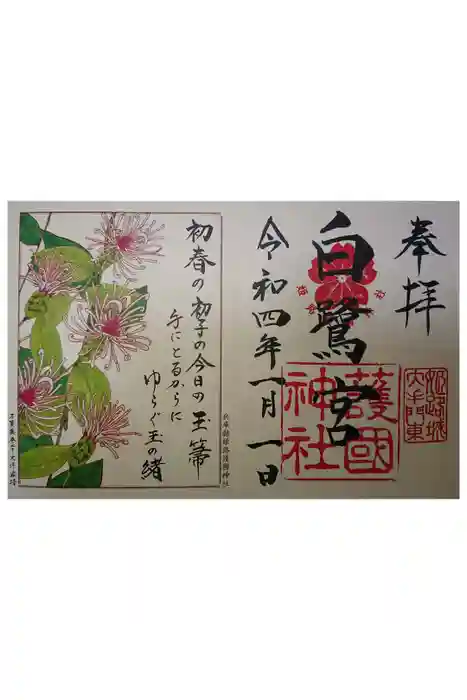 奉拝
姫路城
大手門東
白鷺宮
護國
神社
令和四年一月一日
初春の初子の今日の玉箒
手にとるからに
ゆらぐ玉の緒
兵庫縣姫路護國神社